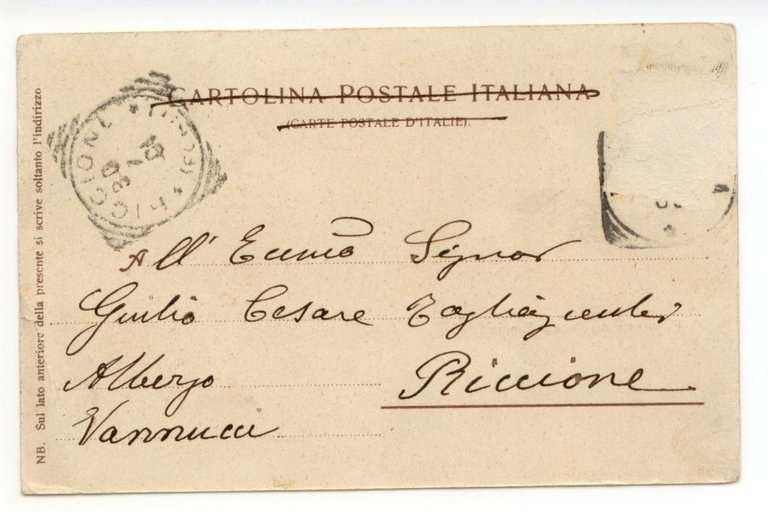 CARTOLINA POSTALE ITALIANA
(CARTE POSTALE D'ITALIE).
NB. Sul lato anteriore della presente si scrive soltanto l'indirizzo
RICCIONE
All' Ecc̄mo Signor
Giulio Cesare
Albergo Riccione
Vannucci